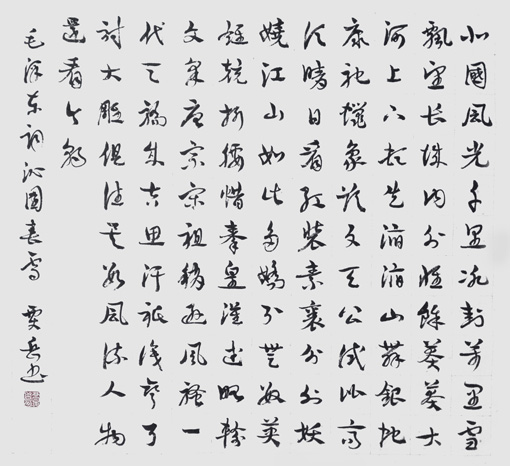 北國風光千里冰封萬里雪
飄望長城内外惟餘莽莽大
河上下頓失滔滔山舞銀蛇
原馳蠟象欲與天公試比高
須晴日看紅裝素裹分外妖
嬈江山如此多嬌引無數英
雄競折腰惜秦皇漢武略輸
文采唐宗宋祖稍遜風騷一
代天驕成吉思汗祗識彎弓
射大雕俱往矣數風流人物
還看今朝
毛澤東詞沁園春雪 書